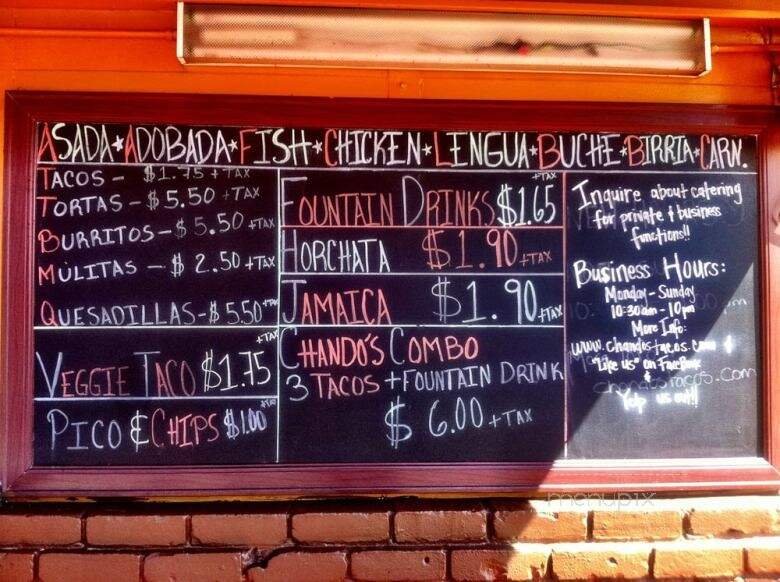 ASADA★ADOBADA★FISH★CHICKEN★LENGUA★BUCHE★BIRRIA★CARN.
TACOS - $1.75 + TAX
TORTAS - $5.50 + TAX
BURRITOS - $5.50 + TAX
MULITAS - $2.50 + TAX
QUESADILLAS - $5.50 + TAX
VEGGIE TACO $1.75 + TAX
PICO & CHIPS $1.00 + TAX
FOUNTAIN DRINKS $1.65 + TAX
HORCHATA $1.90 + TAX
JAMAICA $1.90 + TAX
CHANDO'S COMBO
3 TACOS + FOUNTAIN DRINK
$6.00 + TAX
Inquire about catering
for private & business
functions!!
Business Hours:
Monday - Sunday
10:30am - 10pm
More Info:
www.chandostacos.com
"Like us" on Facebook
&
Yelp us out!!
menupix